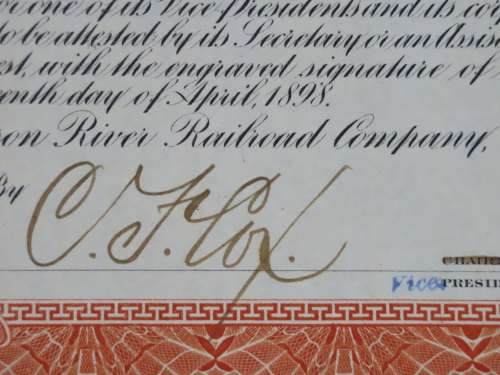 or one of its Vice-Presidents and its co
to be attested by its Secretary or an Assis
est, with the engraved signature of
enth day of April, 1898.
son River Railroad Company,
By
C. F. Cox.
Vice PRESID